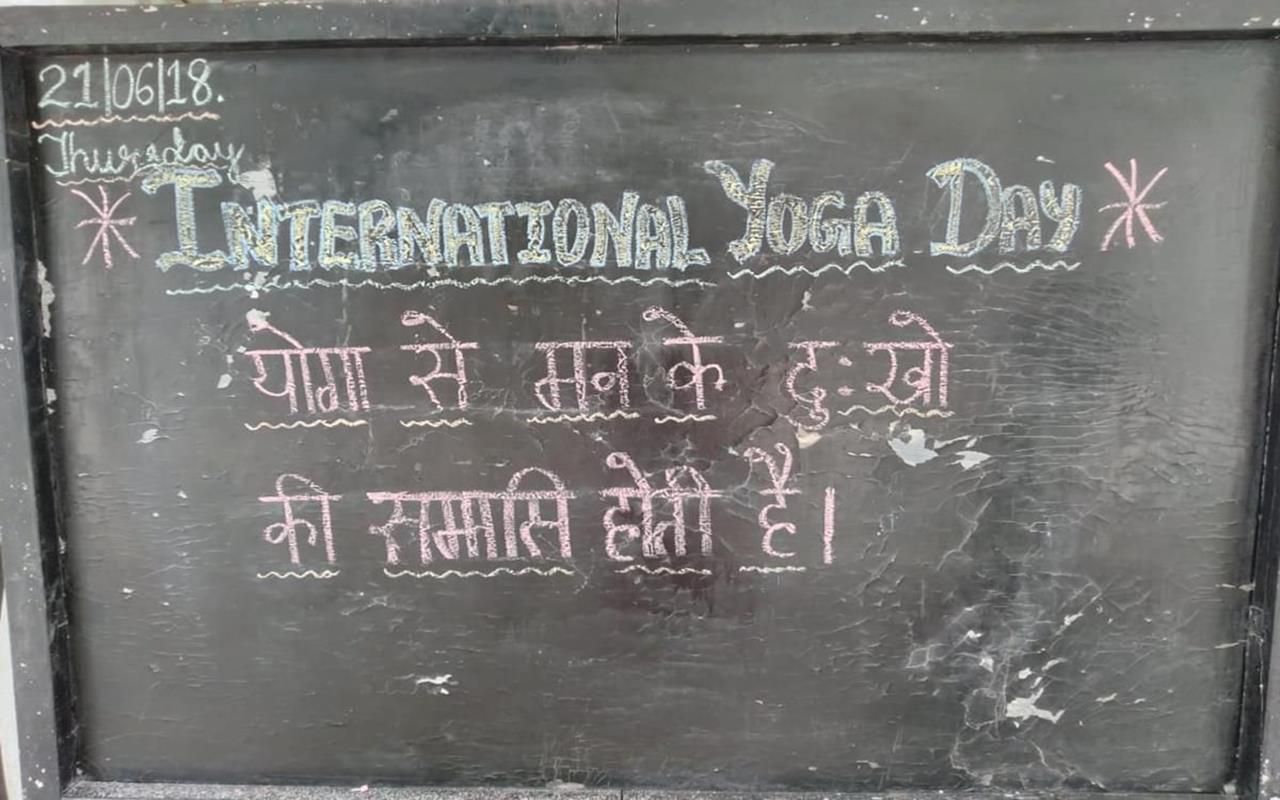 21/06/18.
Thursday
INTERNATIONAL YOGA DAY
योगा से मन के दुःखो
की समाप्ति होती है।